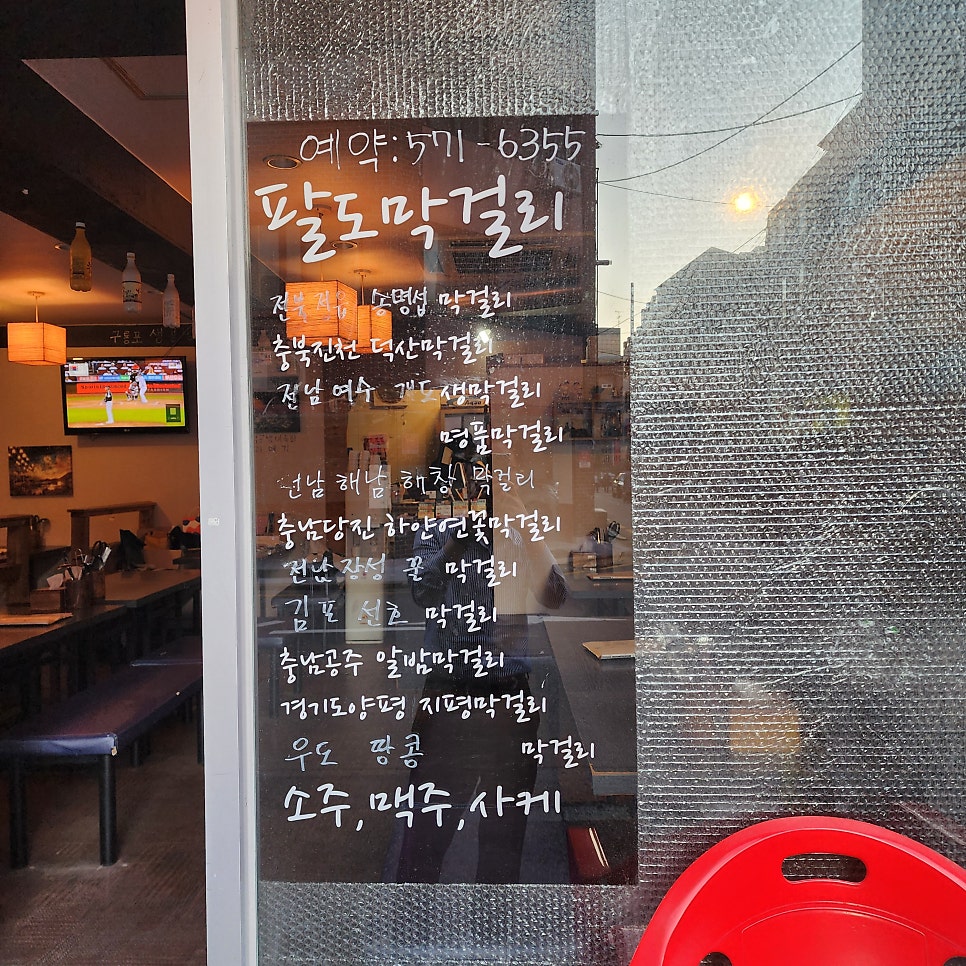 예약:571-6355
팔도막걸리
전북정읍 송명섭 막걸리
충북진천 덕산막걸리
전남 여수 개도생막걸리
명품막걸리
전남 해남 해창 막걸리
충남당진 하얀연꽃막걸리
전남 장성 꿀 막걸리
김포 선호 막걸리
충남공주 알밤막걸리
경기도양평 지평막걸리
우도 땅콩 막걸리
소주, 맥주, 사케